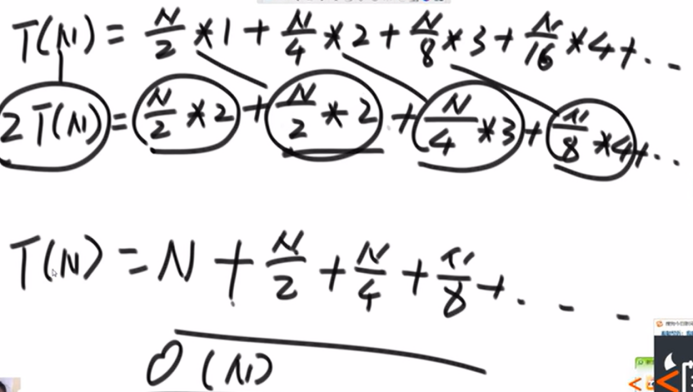 T(N) = N/2 * 1 + N/4 * 2 + N/8 * 3 + N/16 * 4 + ...
2T(N) = N/2 * 2 + N/2 * 2 + N/4 * 3 + N/8 * 4 + ...
T(N) = N + N/2 + N/4 + N/8 + ...
O(N)